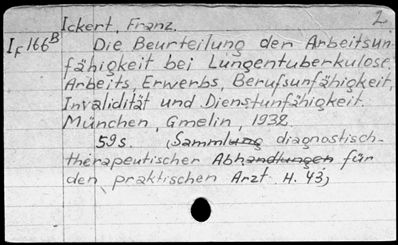 Ickert, Franz. 2
If 166B Die Beurteilung der Arbeitsun-
fähigkeit bei Lungentuberkulose,
Arbeits, Erwerbs, Berufsunfähigkeit,
Invalidität und Dienstunfähigkeit.
München, Gmelin, 1938.
59 s. (Sammlung diagnostisch-
therapeutischer Abhandlungen für
den praktischen Arzt. H. 43)